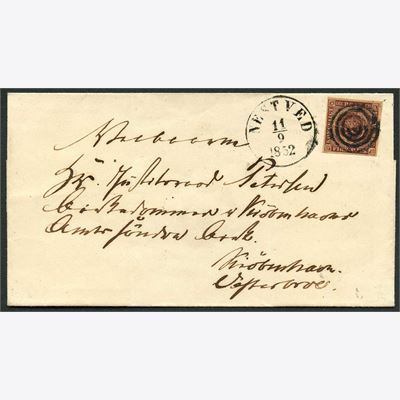 NESTVED
11
9
1852
Velbaarne
Hr. Justitsraad Petersen
Birkedommer i Kiöbenhavns
Amts söndre Birk.
Kiöbenhavn.
Vesterbroe.